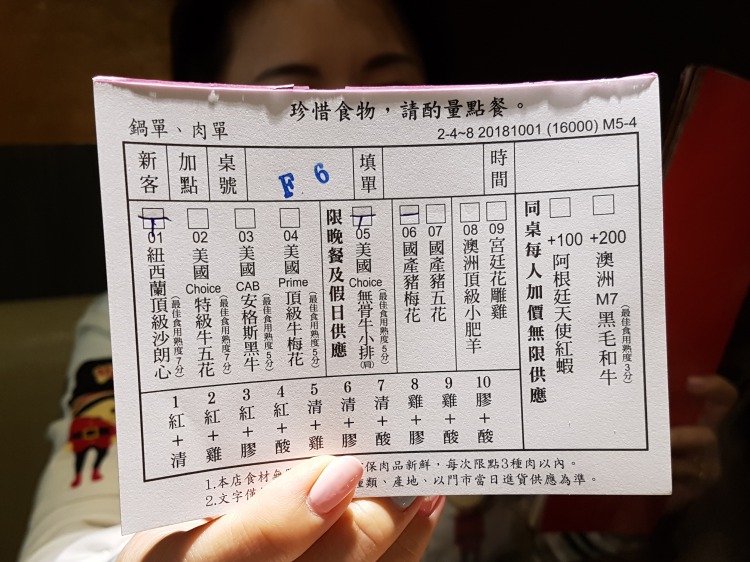 珍惜食物，請酌量點餐。
鍋單、肉單
2-4~8 20181001 (16000) M5-4
新客 加點 桌號 F 6 填單 時間
01 紐西蘭頂級沙朗心 (最佳食用熟度7分)
02 美國Choice特級牛五花 (最佳食用熟度7分)
03 美國CAB安格斯黑牛 (最佳食用熟度5分)
04 美國Prime頂級牛梅花 (最佳食用熟度5分)
限晚餐及假日供應
05 美國Choice無骨牛小排(肩) (最佳食用熟度5分)
06 國產豬梅花
07 國產豬五花
08 澳洲頂級小肥羊
09 宮廷花雕雞
同桌每人加價無限供應
+100 阿根廷天使紅蝦
+200 澳洲M7黑毛和牛 (最佳食用熟度3分)
1 紅+清
2 紅+雞
3 紅+膠
4 紅+酸
5 清+雞
6 清+膠
7 清+酸
8 雞+膠
9 雞+酸
10 膠+酸
1.本店食材無 保肉品新鮮，每次限點3種肉以內。
2.文字僅 種類、產地、以門市當日進貨供應為準。